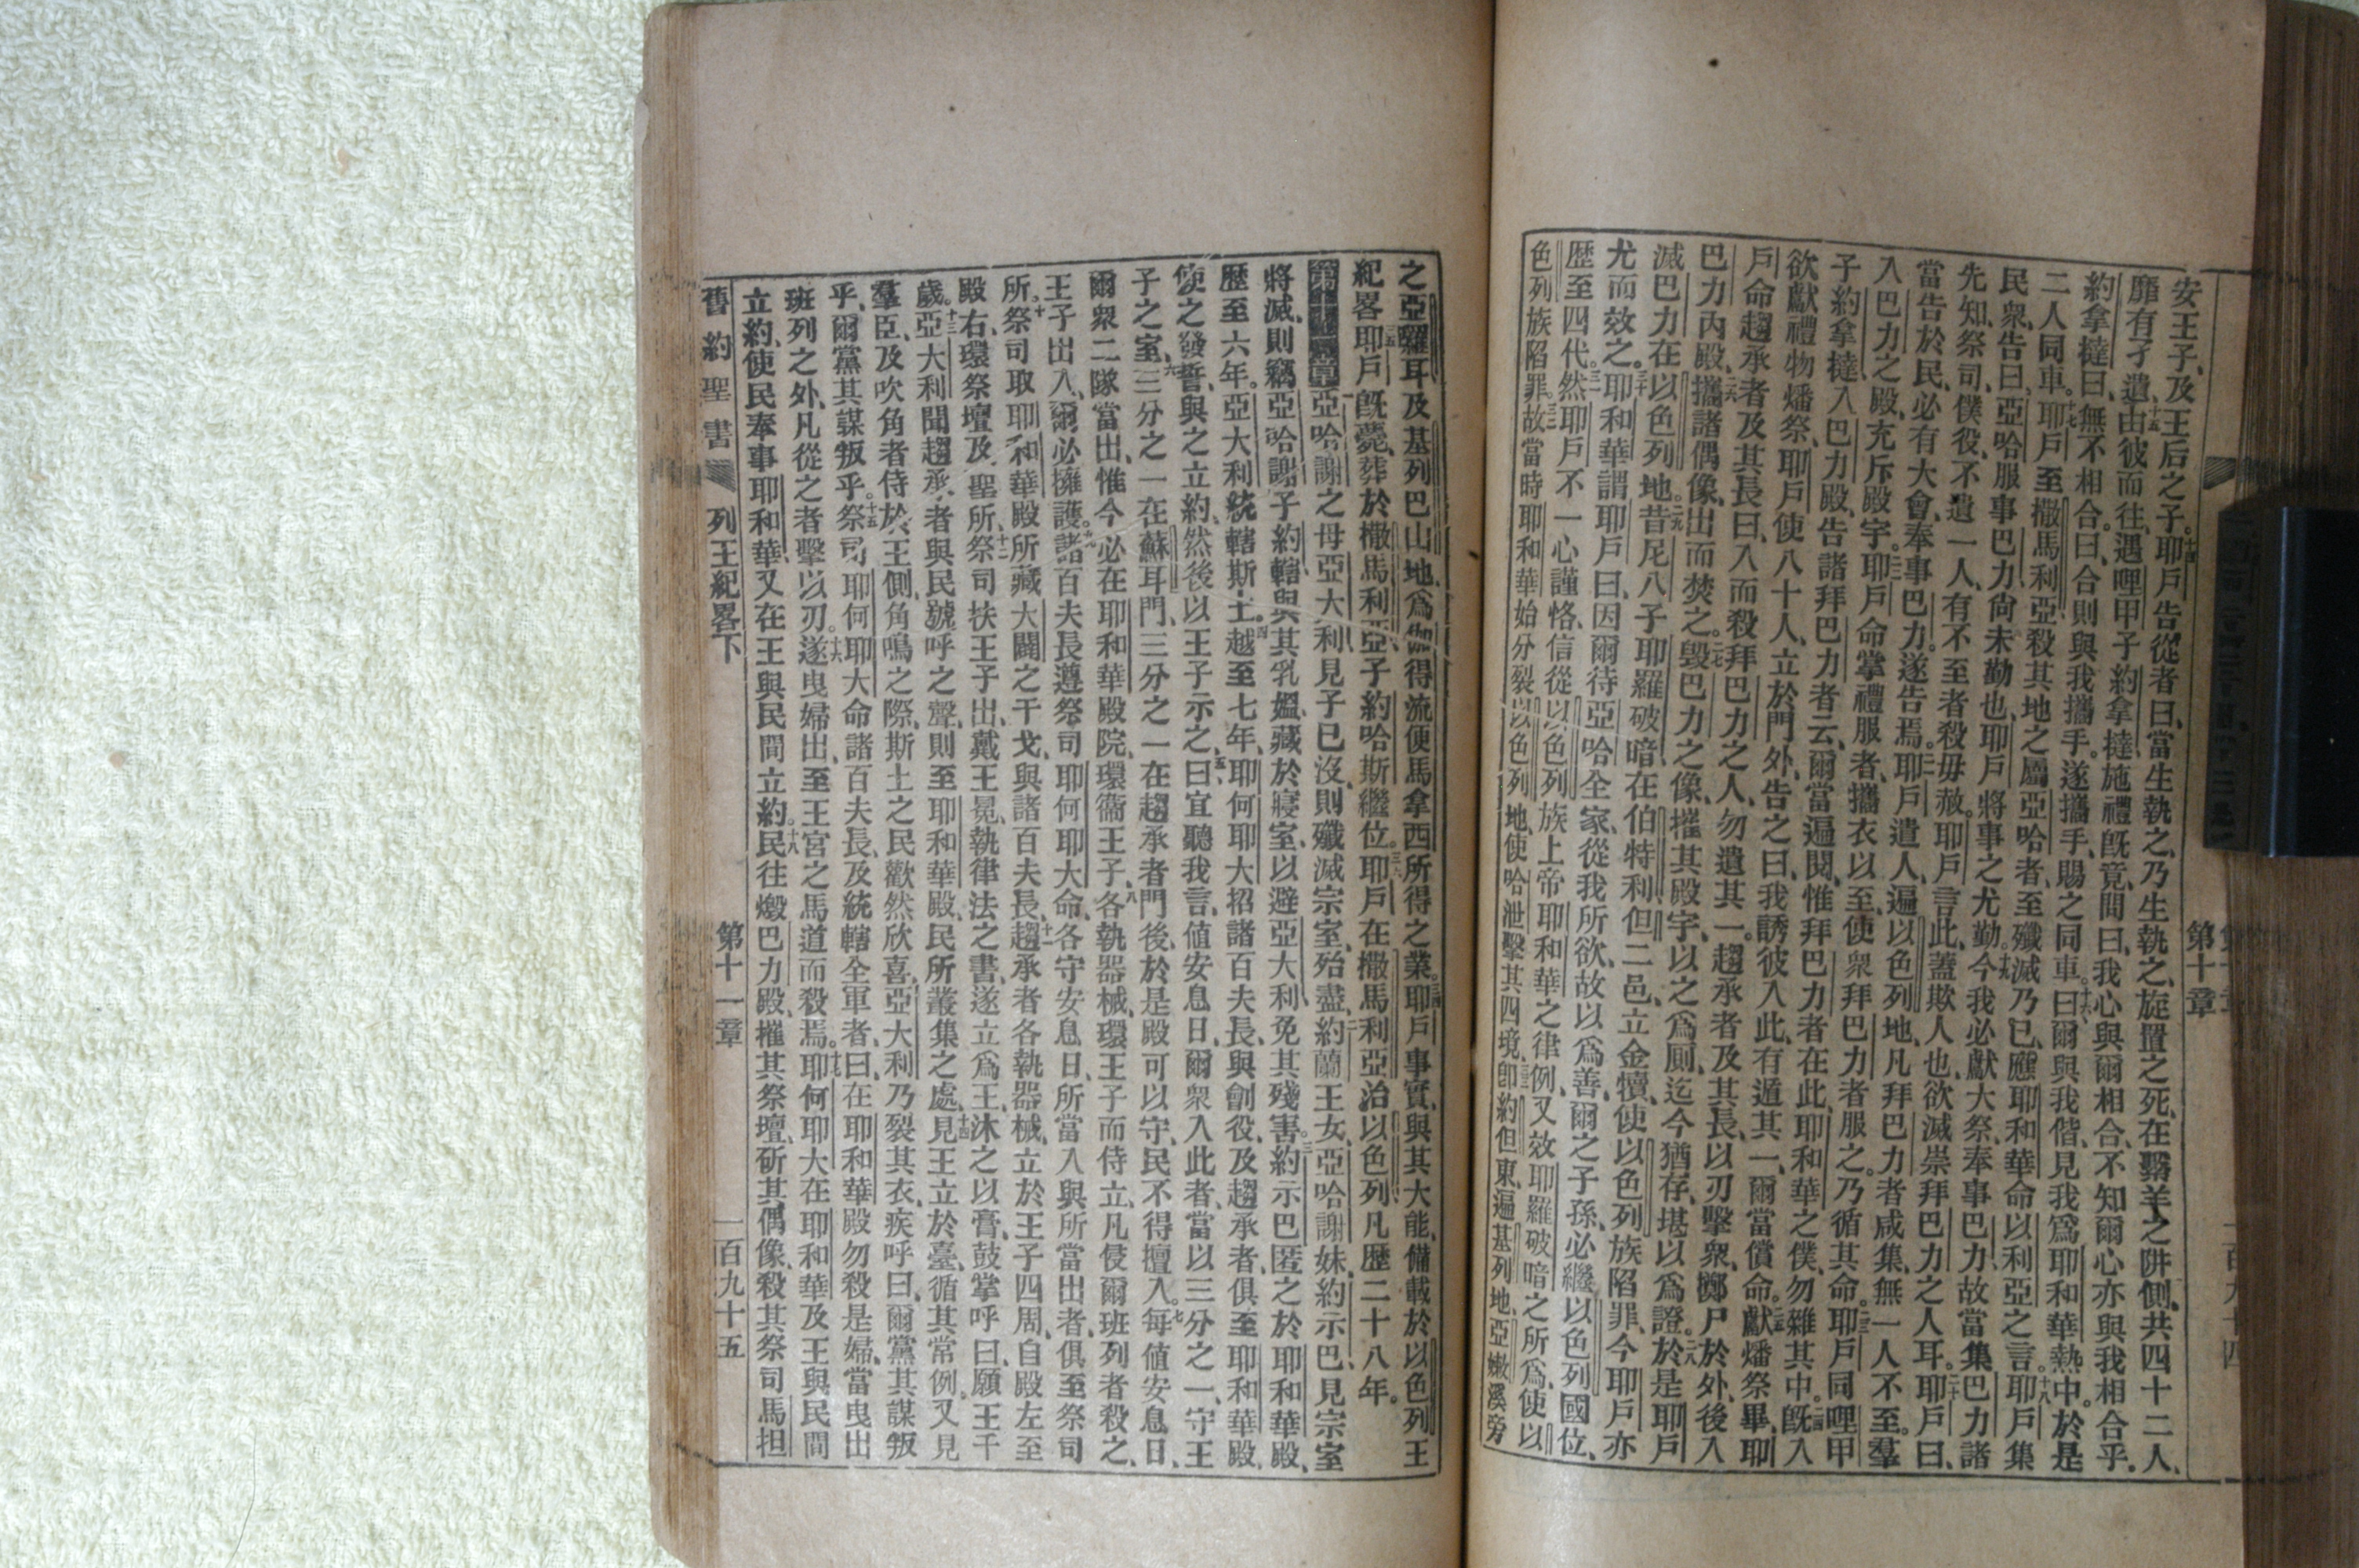 安王子、及王后之子。十四耶戶告從者曰、當生執之、乃生執之、旋置之死、在翦羊之阱側、共四十二人、
靡有孑遺。十五由彼而往、遇哩甲子約拿撻施禮既竟、問曰、我心與爾相合、不知爾心亦與我相合乎。
約拿撻曰、無不相合。曰、合則與我攜手。遂攜手、賜之同車。十六曰、爾與我偕、見我爲耶和華熱中。於是
二人同車。十七耶戶至撒馬利亞、殺其地之屬亞哈者、至殲滅乃已、應耶和華命以利亞之言。十八耶戶集
民衆、告曰、亞哈服事巴力、尚未勤也、耶戶將事之尤勤。十九今我必獻大祭、奉事巴力、故當集巴力諸
先知祭司、僕役、不遺一人、有不至者殺毋赦。耶戶言此、蓋欺人也、欲滅崇拜巴力之人耳。二十耶戶曰、
當告於民、必有大會、奉事巴力。遂告焉。二一耶戶遣人、遍以色列地、凡拜巴力者咸集、無一人不至。羣
入巴力之殿、充斥殿宇。二二耶戶命掌禮服者、攜衣以至、使衆拜巴力者服之。乃循其命。二三耶戶同哩甲
子約拿撻入巴力殿、告諸拜巴力者云、爾當遍閱、惟拜巴力者在此、耶和華之僕、勿雜其中。二四既入
欲獻禮物燔祭、耶戶使八十人、立於門外、告之曰、我誘彼入此、有遁其一、爾當償命。二五獻燔祭畢、耶
戶命趨承者及其長曰、入而殺拜巴力之人、勿遺其一。趨承者及其長、以刃擊衆、擲尸於外、後入
巴力內殿、二六攜諸偶像、出而焚之。二七毀巴力之像、摧其殿宇、以之爲厠、迄今猶存、堪以爲證。二八於是耶戶
滅巴力在以色列地。二九昔尼八子耶羅破暗、在伯特利、但二邑、立金犢、使以色列族陷罪、今耶戶亦
尤而效之。三十耶和華謂耶戶曰、因爾待亞哈全家、從我所欲、故以爲善、爾之子孫、必繼以色列國位、
歷至四代。三一然耶戶不一心謹恪、信從以色列族上帝耶和華之律例、又效耶羅破暗之所爲、使以
色列族陷罪。三二故當時耶和華始分裂以色列地、使哈泄擊其四境、三三卽約但東、遍基列地、亞嫩溪旁
之亞羅耳及基列巴山地、爲伽得流便馬拿西所得之業。三四耶戶事實、與其大能、備載於以色列王
紀畧。三五耶戶旣薨、葬於撒馬利亞、子約哈斯繼位。三六耶戶在撒馬利亞、治以色列、凡歷二十八年。
第十一章 一亞哈謝之母亞大利、見子已沒、則殲滅宗室、殆盡、二約蘭王女、亞哈謝妹、約示巴、見宗室
將滅、則竊亞哈謝子約轄與其乳媼、藏於寢室、以避亞大利、免其殘害。三約示巴匿之於耶和華殿、
歷至六年。亞大利統轄斯土。四越至七年、耶何耶大招諸百夫長、與創役、及趨承者、俱至耶和華殿、
使之發誓、與之立約、然後以王子示之、五曰宜聽我言、値安息日、爾衆入此者、當以三分之一、守王
子之室、六三分之一、在蘇耳門、三分之一、在趨承者門後、於是殿可以守、民不得擅入。七每値安息日、
爾衆二隊當出、惟今必在耶和華殿院、環衞王子、八各執器械、環王子而侍立、凡侵爾班列者、殺之、
王子出入、爾必擁護。九諸百夫長遵祭司耶何耶大命、各守安息日、所當入與所當出者、俱至祭司
所。十祭司取耶和華殿所藏大闢之干戈、與諸百夫長、十一趨承者各執器械、立於王子四周、自殿左至
殿右、環祭壇及聖所、十二祭司扶王子出、戴王冕、執律法之書、遂立爲王、沐之以膏、鼓掌呼曰、願王千
歲。十三亞大利聞趨承者與民號呼之聲、則至耶和華殿、民所叢集之處、十四見王立於臺、循其常例、又見
羣臣、及吹角者侍於王側、角鳴之際、斯土之民歡然欣喜、亞大利乃裂其衣、疾呼曰、爾黨其謀叛
乎、爾黨其謀叛乎。十五祭司耶何耶大命諸百夫長、及統轄全軍者、曰、在耶和華殿勿殺是婦、當曳出
班列之外、凡從之者擊以刃。十六遂曳婦出、至王宮之馬道而殺焉。十七耶何耶大在耶和華及王與民間
立約、使民奉事耶和華、又在王與民間立約。十八民往燬巴力殿、摧其祭壇、斫其偶像、殺其祭司馬担
舊約聖書 列王紀畧下 第十一章 一百九十五
第十章